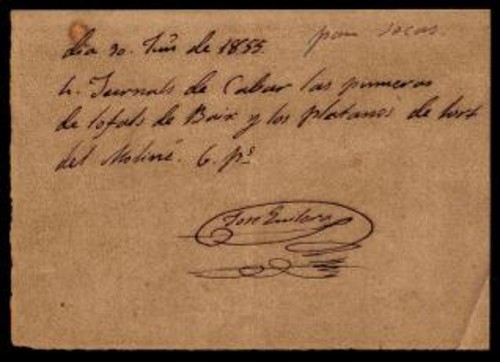 dia 30. Jun de 1855.
4. Jurnals de Cabar las pumeras
de tofals de Baix y los platanos de hort
del Moliné. 6. ps
Jose